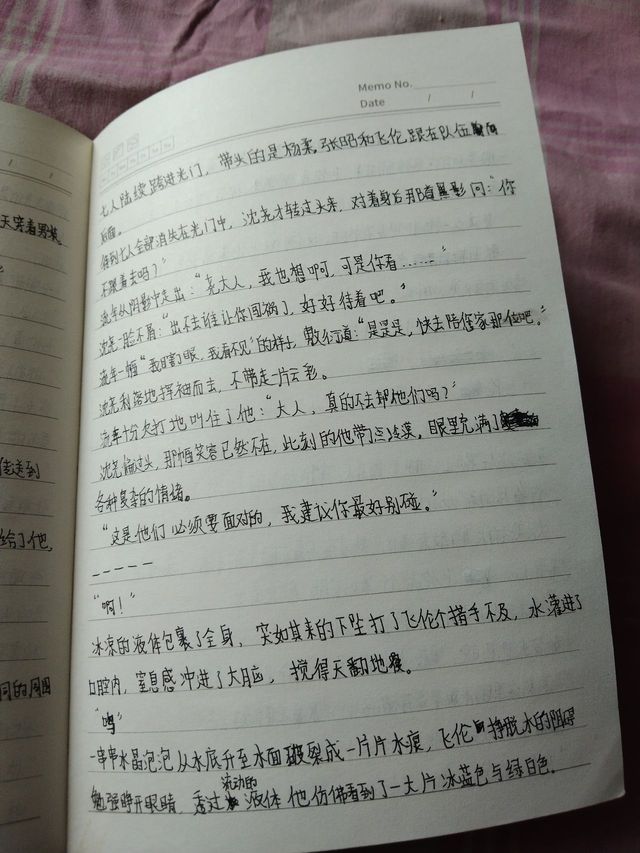 Memo No.
Date / /
七人陆续跨进光门，带头的是杨柔，张昭和飞伦跟在队伍
后面。
待到七人全部消失在光门中，沈尧才转过头来，对着身后那道黑影问：“你
不跟着去吗？”
流年从阴影中走出：“尧大人，我也想啊，可是你看……”
沈尧一脸不屑：“出不去谁让你闯祸了，好好待着吧。”
流年一幅“我瞎了眼，我看不见”的样子，敷衍道：“是是是，快去陪您家那位吧。”
沈尧利落地挥袖而去，不带走一片云彩。
流年十分欠打地叫住了他：“大人，真的不去帮他们吗？”
沈尧偏过头，那幅笑容已然不在，此刻的他带了点冷漠，眼里充满了
各种复杂的情绪。
“这是他们必须要面对的，我建议你最好别碰。”
-----
“啊！”
冰凉的液体包裹了全身，突如其来的下坠打了飞伦个措手不及，水灌进了
口腔内，窒息感冲进了大脑，搅得天翻地覆。
“呜”
一串串水晶泡泡从水底升至水面破裂成一片片水痕，飞伦挣脱水的阻碍
勉强睁开眼睛，透过流动的液体他仿佛看到了一大片冰蓝色与绿白色。
天穿着男装
走到
给了他，
同的周围